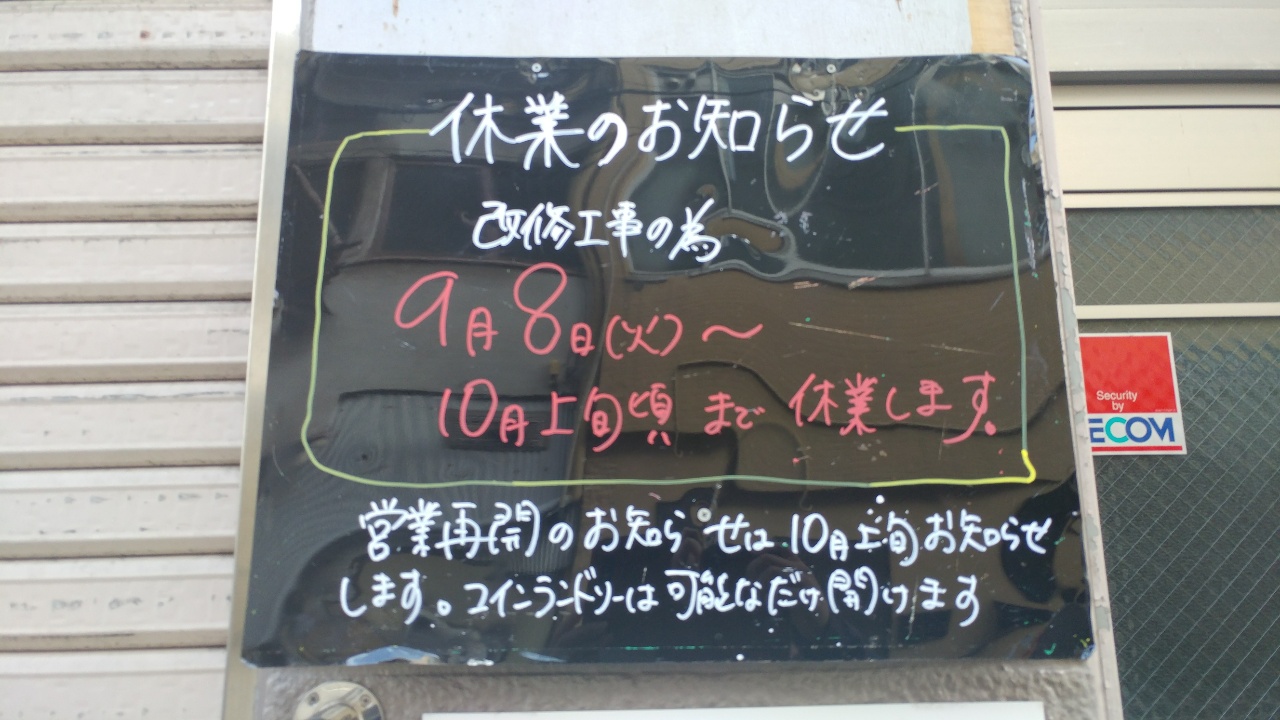 休業のお知らせ
改修工事の為
9月8日(火)〜
10月上旬頃 まで 休業します。
営業再開のお知らせは10月上旬お知らせ
します。コインランドリーは可能なだけ開けます
Security
by
ECOM